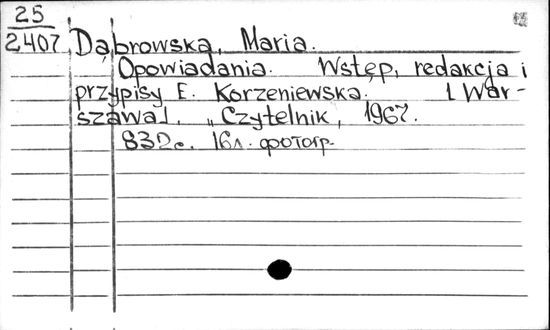 25
2407 Dąbrowska, Maria.
Opowiadania. Wstęp, redakcja i
przypisy E. Korzeniewska. [War-
szawa]. „Czytelnik", 1967.
832с. 16л. фотогр.